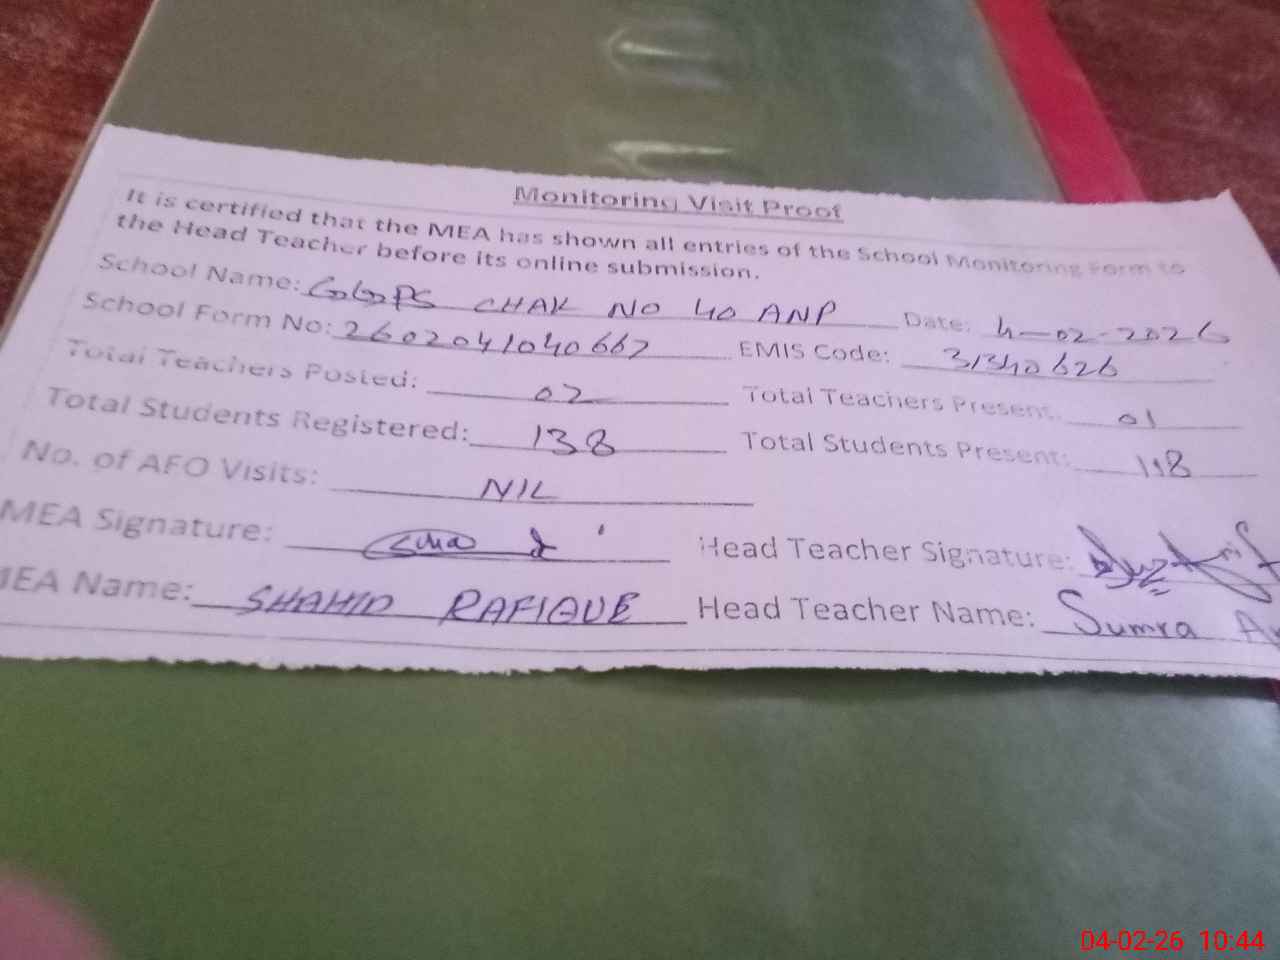 Monitoring Visit Proof
It is certified that the MEA has shown all entries of the School Monitoring Form to
the Head Teacher before its online submission.
School Name: GGPS CHAK NO 40 ANP Date: 4-02-2026
School Form No: 2602041040667 EMIS Code: 31340626
Total Teachers Posted: 02 Total Teachers Present: 01
Total Students Registered: 138 Total Students Present: 118
No. of AFO Visits: NIL
MEA Signature: Head Teacher Signature:
MEA Name: SHAHID RAFIQUE Head Teacher Name: Sumra
04-02-26 10:44